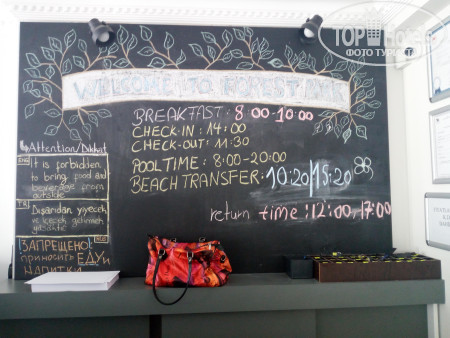 WELCOME TO FOREST PARK
BREAKFAST: 8:00-10:00
CHECK-IN: 14:00
CHECK-OUT: 11:30
POOL TIME: 8:00-20:00
BEACH TRANSFER: 10:20/15:20
return time: 12:00, 17:00
Attention/Dikkat
ENG
It is forbidden
to bring food and
beverage from
outside
TR
Dışarıdan yiyecek
ve içecek getirmek
yasaktır
RUS
ЗАПРЕЩЕНО!
приносить ЕДУ и
НАПИТКИ
ФОТО ТУРИСТА